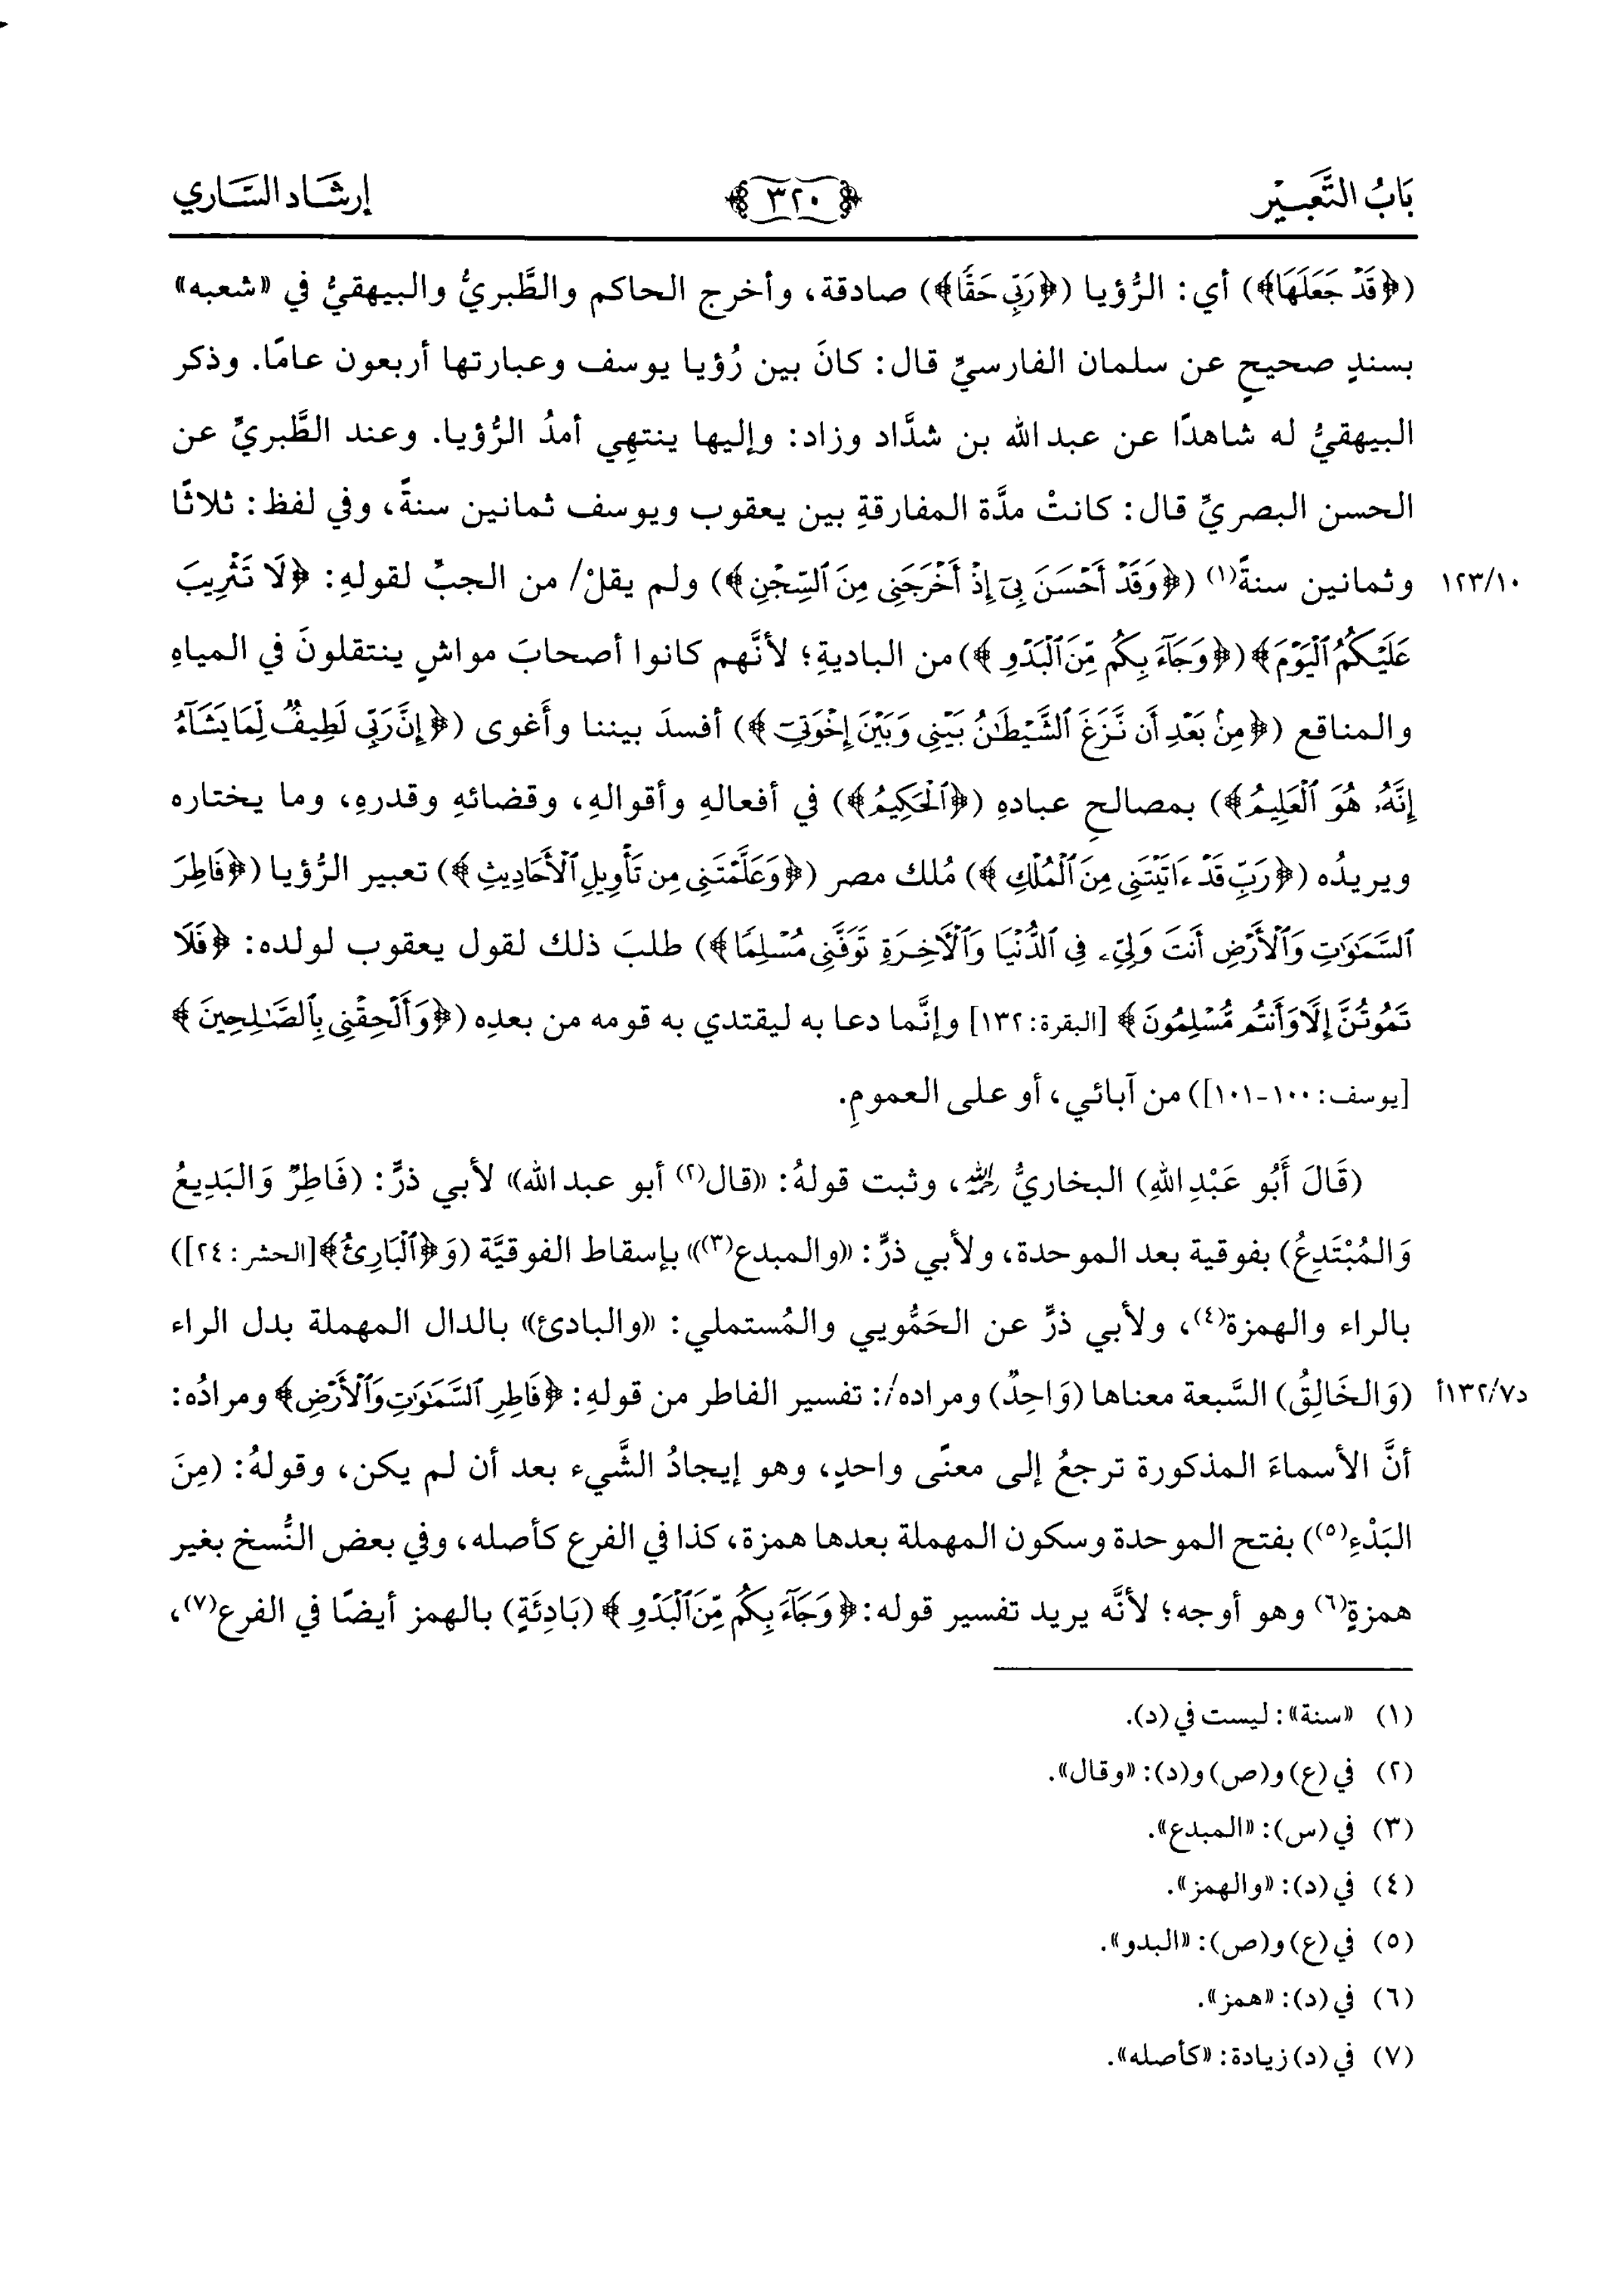 بَابُ التَّعبِيْرِ ٣٢٠ إرشَاد السَّاري
(﴿قَدْ جَعَلَهَا﴾) أي: الرُّؤيا (﴿رَبِّي حَقًّا﴾) صادقة، وأخرج الحاكم والطَّبريُّ والبيهقيُّ في «شعبه»
بسندٍ صحيحٍ عن سلمان الفارسيِّ قال: كانَ بين رُؤيا يوسف وعبارتها أربعون عامًا. وذكر
البيهقيُّ له شاهدًا عن عبد الله بن شدَّاد وزاد: وإليها ينتهِي أمدُ الرُّؤيا. وعند الطَّبريِّ عن
الحسن البصريِّ قال: كانتْ مدَّة المفارقةِ بين يعقوب ويوسف ثمانين سنةً، وفي لفظ: ثلاثًا
١٢٣/١٠ وثمانين سنةً(١) (﴿وَقَدْ أَحْسَنَ بِيٓ إِذْ أَخْرَجَنِي مِنَ ٱلسِّجْنِ﴾) ولم يقلْ/ من الجبِّ لقولهِ: ﴿لَا تَثْرِيبَ
عَلَيْكُمُ ٱلْيَوْمَ﴾ (﴿وَجَآءَ بِكُم مِّنَ ٱلْبَدْوِ﴾) من الباديةِ؛ لأنَّهم كانوا أصحابَ مواشٍ ينتقلونَ في المياهِ
والمناقع (﴿مِنۢ بَعْدِ أَن نَّزَغَ ٱلشَّيْطَٰنُ بَيْنِي وَبَيْنَ إِخْوَتِيٓ﴾) أفسدَ بيننا وأَغوى (﴿إِنَّ رَبِّي لَطِيفٌ لِّمَا يَشَآءُ
إِنَّهُۥ هُوَ ٱلْعَلِيمُ﴾) بمصالحِ عبادهِ (﴿ٱلْحَكِيمُ﴾) في أفعالهِ وأقوالهِ، وقضائهِ وقدرهِ، وما يختاره
ويريدُه (﴿رَبِّ قَدْ ءَاتَيْتَنِي مِنَ ٱلْمُلْكِ﴾) مُلك مصر (﴿وَعَلَّمْتَنِي مِن تَأْوِيلِ ٱلْأَحَادِيثِ﴾) تعبير الرُّؤيا (﴿فَاطِرَ
ٱلسَّمَٰوَٰتِ وَٱلْأَرْضِ أَنتَ وَلِيِّۦ فِي ٱلدُّنْيَا وَٱلْأَخِرَةِ تَوَفَّنِي مُسْلِمًا﴾) طلبَ ذلك لقول يعقوب لولده: ﴿فَلَا
تَمُوتُنَّ إِلَّا وَأَنتُم مُّسْلِمُونَ﴾ [البقرة: ١٣٢] وإنَّما دعا به ليقتدي به قومه من بعدِه (﴿وَأَلْحِقْنِي بِٱلصَّٰلِحِينَ﴾
[يوسف: ١٠٠-١٠١]) من آبائي، أو على العمومِ.
(قَالَ أَبُو عَبْدِ اللهِ) البخاريُّ رحمه الله، وثبت قولهُ: «قال(٢) أبو عبد الله» لأبي ذرٍّ: (فَاطِرٌ وَالبَدِيعُ
وَالمُبْتَدِعُ) بفوقية بعد الموحدة، ولأبي ذرٍّ: «والمبدع(٣)» بإسقاط الفوقيَّة (وَ﴿ٱلْبَارِئُ﴾[الحشر: ٢٤])
بالراء والهمزة(٤)، ولأبي ذرٍّ عن الحَمُّويي والمُستملي: «والبادئ» بالدال المهملة بدل الراء
د١٣٢/٧أ (وَالخَالِقُ) السَّبعة معناها (وَاحِدٌ) ومراده/: تفسير الفاطر من قولهِ: ﴿فَاطِرِ ٱلسَّمَٰوَٰتِ وَٱلْأَرْضِ﴾ ومرادُه:
أنَّ الأسماءَ المذكورة ترجعُ إلى معنًى واحدٍ، وهو إيجادُ الشَّيء بعد أن لم يكن، وقولهُ: (مِنَ
البَدْءِ(٥)) بفتح الموحدة وسكون المهملة بعدها همزة، كذا في الفرع كأصله، وفي بعض النُّسخ بغير
همزةٍ(٦) وهو أوجه؛ لأنَّه يريد تفسير قوله: ﴿وَجَآءَ بِكُم مِّنَ ٱلْبَدْوِ﴾ (بَادِئَةٍ) بالهمز أيضًا في الفرع(٧)،
(١) «سنة»: ليست في (د).
(٢) في (ع) و(ص) و(د): «وقال».
(٣) في (س): «المبدع».
(٤) في (د): «والهمز».
(٥) في (ع) و(ص): «البدو».
(٦) في (د): «همز».
(٧) في (د) زيادة: «كأصله».